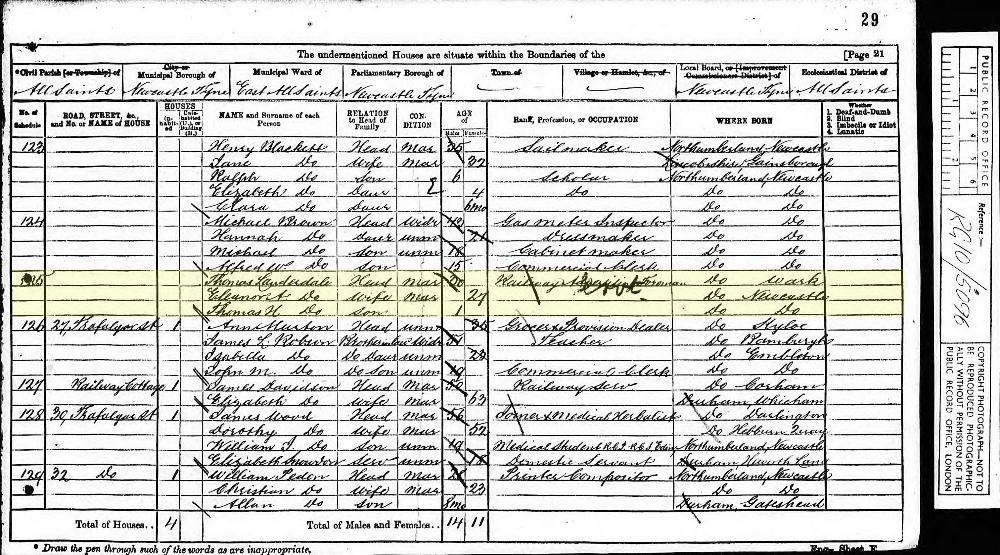 29
The undermentioned Houses are situate within the Boundaries of the [Page 21
*Civil Parish [or Township] of City or Municipal Borough of Municipal Ward of Parliamentary Borough of Town of Village or Hamlet, &c., of Local Board, or [Improvement Commissioners District] of Ecclesiastical District of
All Saints Newcastle Tyne East All Saints Newcastle Tyne Newcastle Tyne All Saints
No. of Schedule ROAD, STREET, &c., and No. or NAME of HOUSE HOUSES Inhabited Uninhabited (U.), or Building (B.) NAME and Surname of each Person RELATION to Head of Family CONDITION AGE of Males Females Rank, Profession, or OCCUPATION WHERE BORN Whether 1. Deaf-and-Dumb 2. Blind 3. Imbecile or Idiot 4. Lunatic
123 Henry Blackett Head Mar 35 Sailmaker Northumberland, Newcastle
Jane Do Wife Mar 32 Lincolnshire, Gainsborough
Ralph Do Son 6 Scholar Northumberland, Newcastle
Elizabeth Do Daur 4 Do Do Do
Clara Do Daur 6mo Do Do
124 Michael Brown Head Widr 49 Gas meter Inspector Do Do
Hannah Do Daur unm 21 Dressmaker Do Do
Michael Do Son unm 18 Cabinet maker Do Do
Alfred W. Do Son 15 Commercial Clerk Do Do
125 Thomas Lauderdale Head Mar 30 Railway Do Wark
Eleanor Do Wife Mar 27 Do Newcastle
Thomas H. Do Son 1 Do Do
126 27, Trafalgar St 1 Ann Murton Head unm 35 Grocer & Provision Dealer Do Kyloe
James L. Robson Widr 51 Teacher Do Bamburgh
Isabella Do Do Daur unm 22 Do Embleton
John M. Do Do Son unm 19 Commercial Clerk Do Do
127 Railway Cottage 1 James Davidson Head Mar Railway Serv Do Corham
Elizabeth Do Wife Mar 63 Durham, Whickham
128 30, Trafalgar St 1 James Wood Head Mar 56 Joiner & Medical Herbalist Do Darlington
Dorothy Do Wife Mar 52 Do Hebburn Quay
William J. Do Son unm 19 Medical Student Northumberland, Newcastle
Elizabeth Snowdon Serv unm 18 Domestic Servant Durham, Heworth Lane
129 32 Do 1 William Peden Head Mar 25 Printer Compositor Northumberland, Newcastle
Christian Do Wife Mar 23 Do Do
Allan Do Son 8mo Durham, Gateshead
Total of Houses.. 4 Total of Males and Females.. 14 11
* Draw the pen through such of the words as are inappropriate. Eng— Sheet E.
PUBLIC RECORD OFFICE
1 2 3 4 5 6
Reference:—
RG10/5096
COPYRIGHT PHOTOGRAPH—NOT TO BE REPRODUCED PHOTOGRAPHICALLY WITHOUT PERMISSION OF THE PUBLIC RECORD OFFICE, LONDON